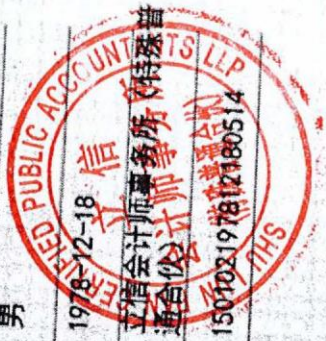 男
1978-12-18
立信会计师事务所(特殊普
通合伙)
150102197812180514
SHU LUN PAN CERTIFIED PUBLIC ACCOUNTANTS LLP
立信
会计师事务所
(特殊普通合伙)